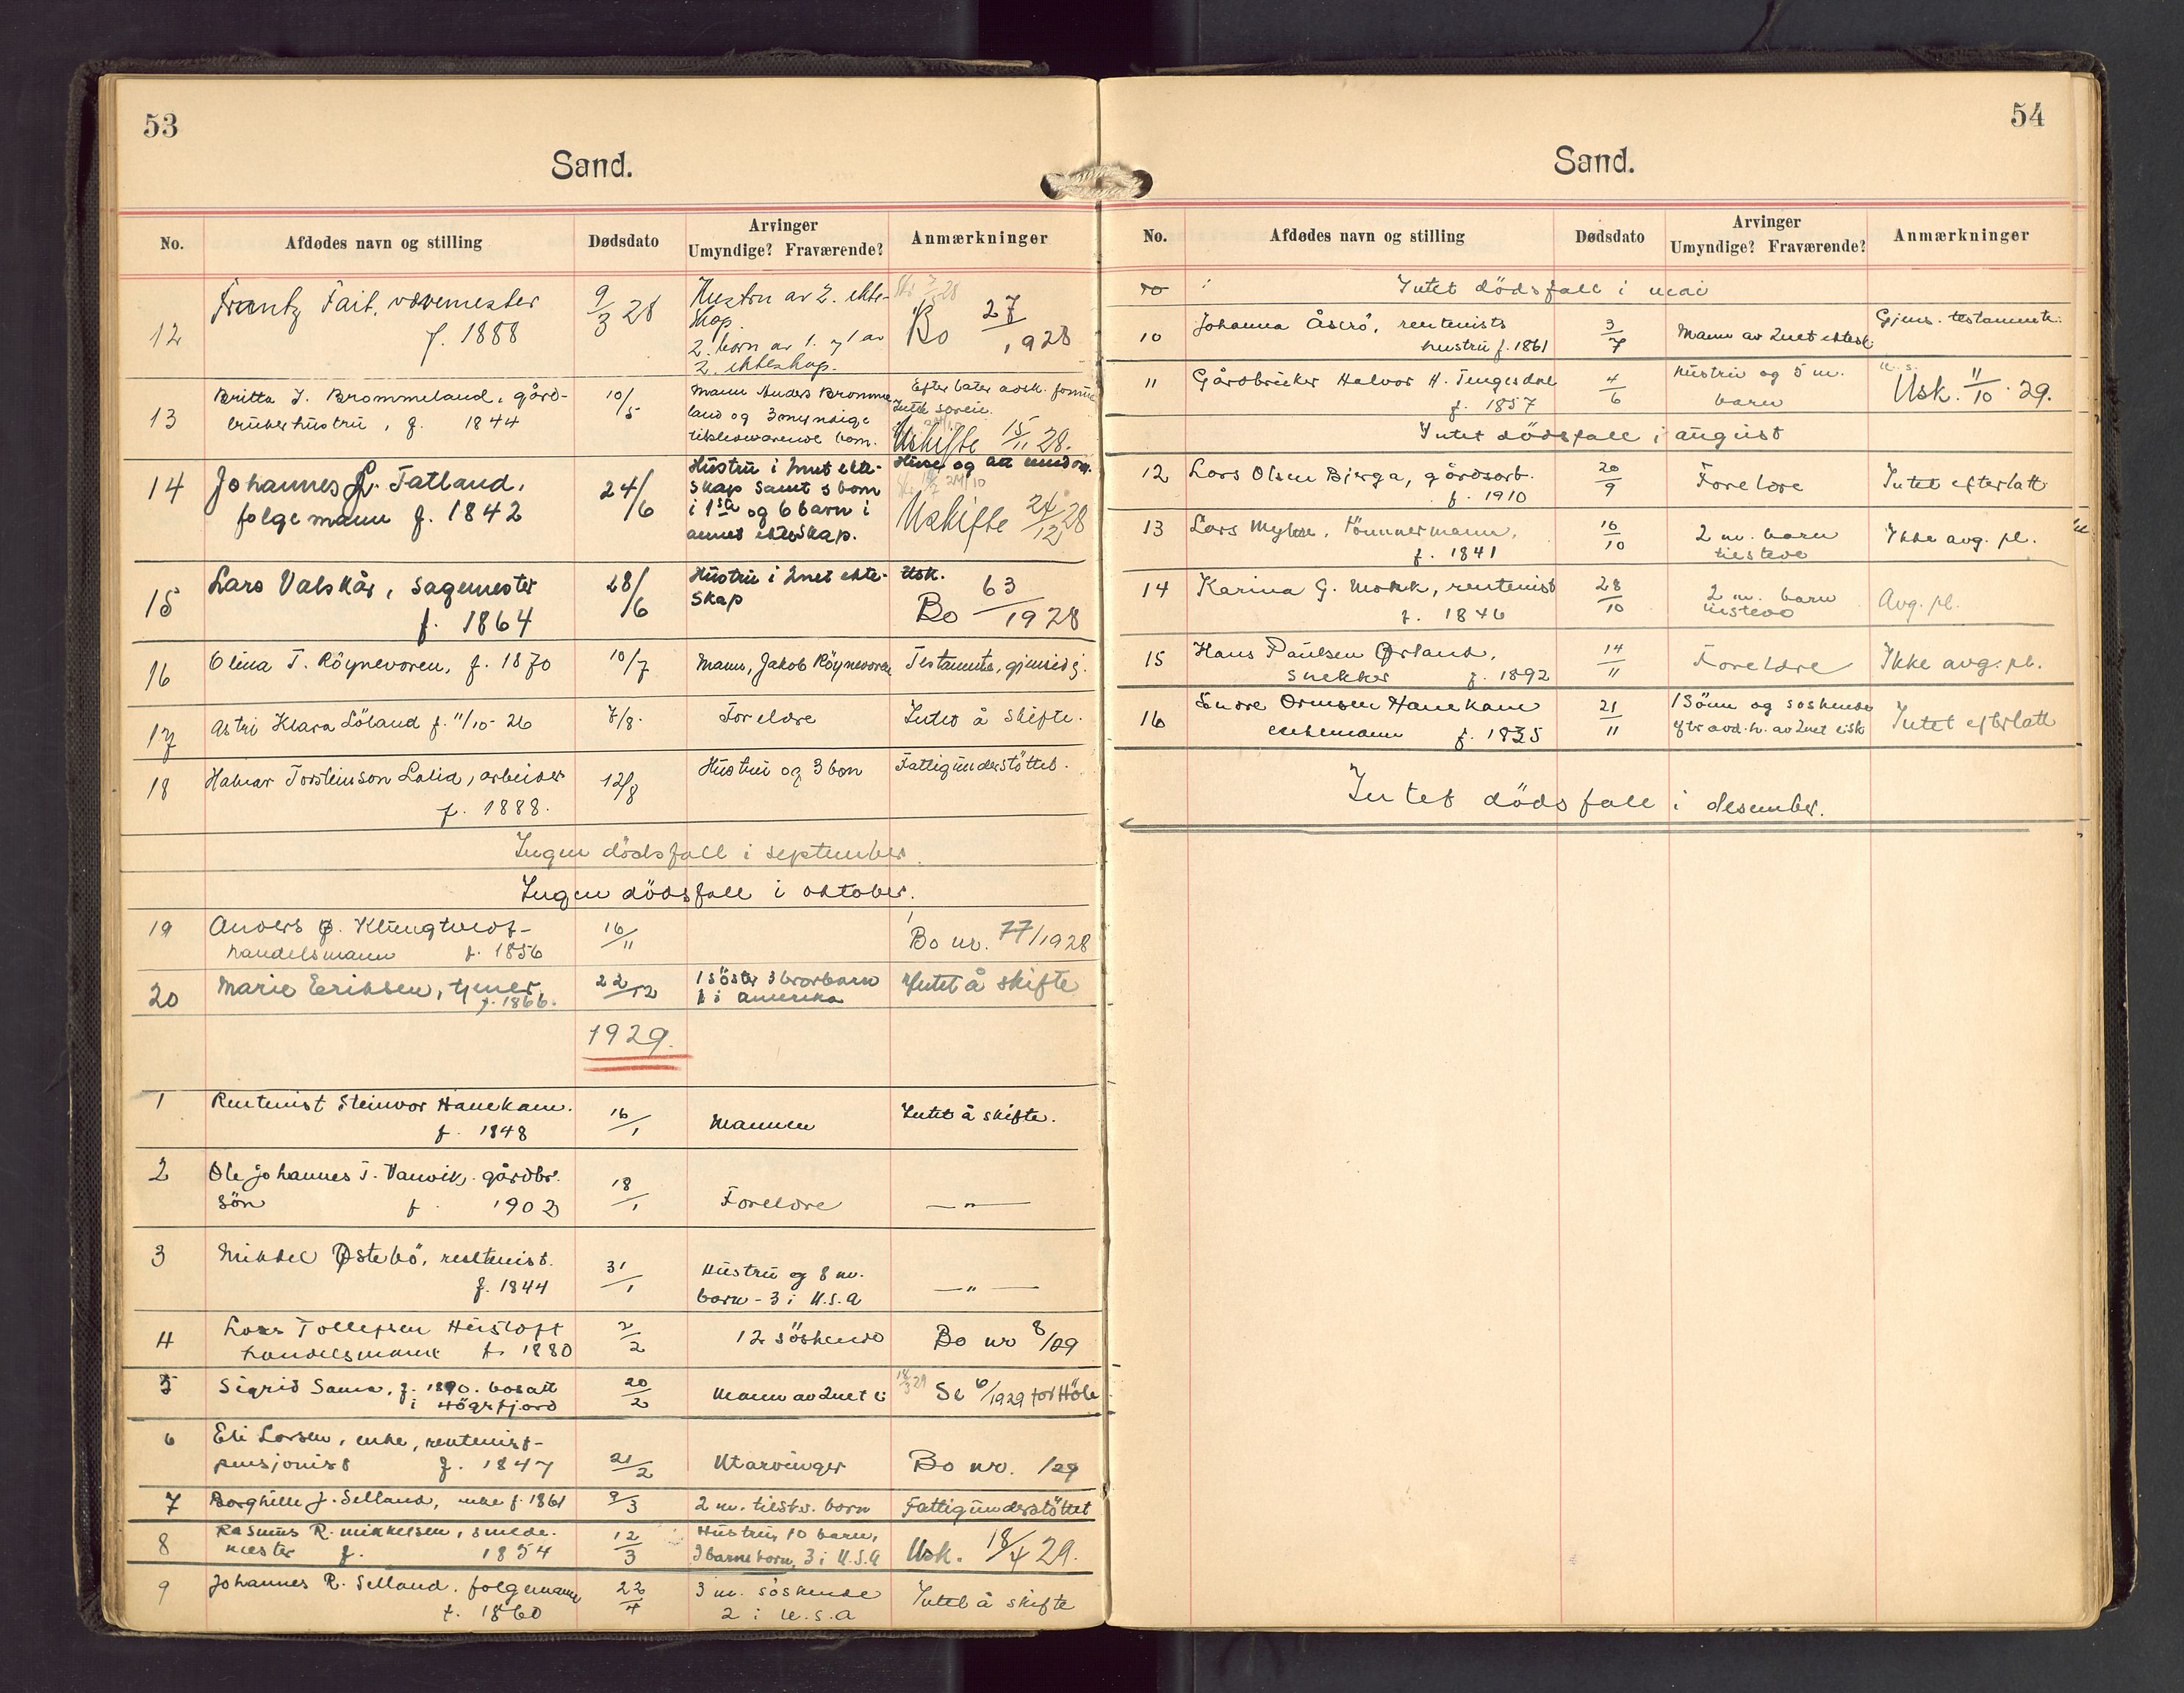 53
Sand.
No. Afdødes navn og stilling Dødsdato Arvinger Umyndige? Fraværende? Anmærkninger
12 Frantz Fait, vævemester f. 1888 9/3 28 Hustru av 2. ekteskap. 2. barn av 1. og 1 av 2. ekteskap. Bo 27/1928
13 Britta J. Brommeland, gård-
brukerhustru, f. 1844 10/5 Mann Anders Bromme-
land og 3 myndige
tilstedeværende barn. Uskifte 15/11 28.
14 Johannes L. Tatland,
folgemann f. 1842 24/6 Hustru i 2net ekte-
skap samt 5 barn
i 1ste og 6 barn i
annet ekteskap. Uskifte 24/12 28
15 Lars Valskår, sagmester
f. 1864 28/6 Hustru i 2net ekte-
skap Usk.
Bo 63/1928
16 Olina T. Röynevoren, f. 1870 10/7 Mann, Jakob Röynevoren Testamente, gjensidig.
17 Astri Klara Löland f. 11/10-26 7/8. Foreldre Intet å skifte.
18 Halvar Torsteinson Lalid, arbeider
f. 1888. 12/8 Hustru og 3 barn Fattigunderstöttet.
Ingen dödsfall i september.
Ingen dödsfall i oktober.
19 Anders Ø. Klungtvedt
handelsmann f. 1856 16/11 Bo nr. 77/1928
20 Marie Eriksen, tjener,
f. 1866. 22/12 1 söster 3 brorbarn
1 i Amerika Intet å skifte
1929.
1 Rentenist Steinvor Hanekam.
f. 1848 16/1 Mannen Intet å skifte.
2 Ole Johannes T. Vanvik, gårdbr.
sön f. 1902 18/1 Foreldre — " —
3 Mikkel Østebö, rentenist.
f. 1844 31/1 Hustru og 8 m.
barn - 3 i U.S.A — " —
4 Lars Tollefsen Husloft
handelsmann f. 1880 2/2 12 söskende Bo nr 8/29
5 Sigrid Sama, f. 1890. bosatt
i Högsfjord 20/2 Mann av 2net e. 18/3 29 Se 6/1929 for Höle
6 Eli Larsen, enke, rentenist-
pensjonist f. 1847 21/2 Utarvinger Bo nr. /29
7 Borghille J. Selland, enke f. 1861 9/3 2 m. tilstv. barn Fattigunderstöttet
8 Rasmus R. Mikkelsen, smede-
mester f. 1854 12/3 Hustru, 10 barn,
3 barnebarn, 3 i U.S.A Usk. 18/4 29.
9 Johannes R. Selland, folgemann
f. 1860 22/4 3 m. söskende
2 i U.S.A Intet å skifte
54
Sand.
No. Afdødes navn og stilling Dødsdato Arvinger Umyndige? Fraværende? Anmærkninger
10 Intet dödsfall i mai
10 Johanna Åserö, rentenists
hustru f. 1861 3/7 Mann av 2net ektesk. Gjens. testamente.
11 Gårdbruker Halvor H. Tengesdal
f. 1857 4/6 Hustru og 5 m.
barn Usk. 11/10 29.
Intet dödsfall i august
12 Lars Olsen Bjerga, gårdsarb.
f. 1910 20/9 Foreldre Intet efterlatt
13 Lars Myhre, tömmermann,
f. 1841 16/10 2 m. barn
tilstede Ikke avg. pl.
14 Karina G. Mokk, rentenist
f. 1846 28/10 2 m. barn
tilstede Avg. pl.
15 Hans Paulsen Ørland,
snekker f. 1892 14/11 Foreldre Ikke avg. pl.
16 Sndre Ormsen Hanekam
enkemann f. 1835 21/11 1 Sönn og söskende
efter avd. h. av 2net esk. Intet efterlatt
Intet dödsfall i desember.